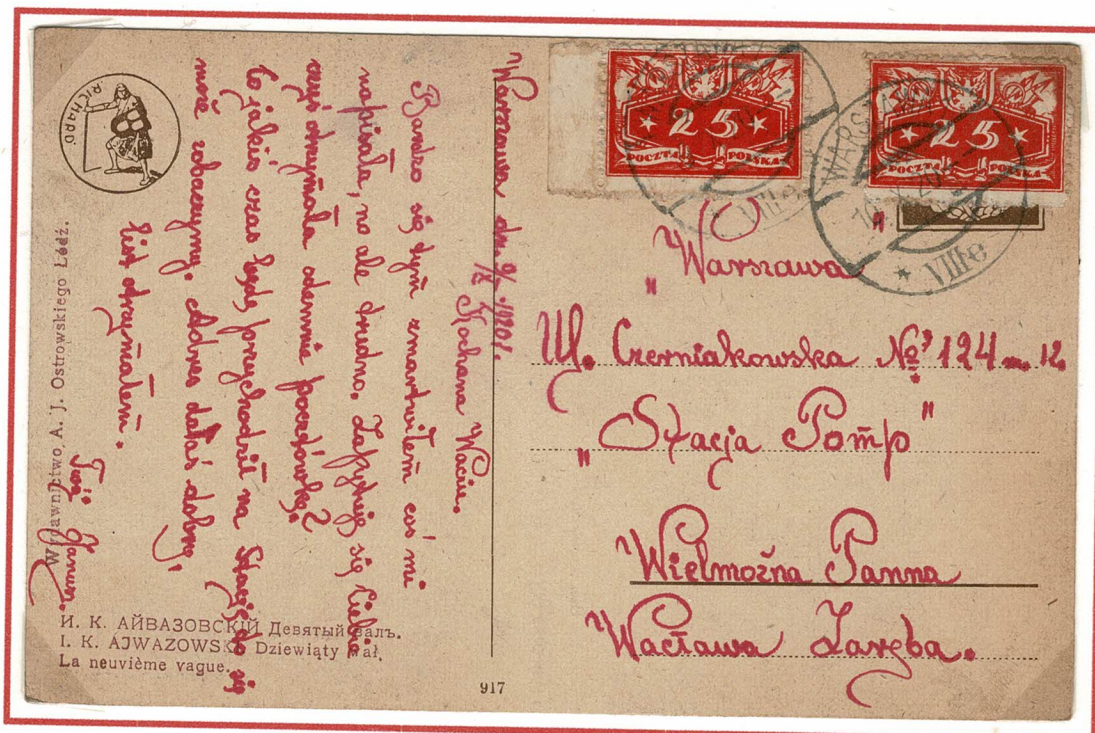 Warszawa dn. 9/X 1920r.
Kochana Waciu.
Bardzo się tym zmartwiłem coś mi
napisała, no ale trudno. Zapytuję się Ciebie
czyś otrzymała odemnie pocztówkę?
Co jakiś czas będę przychodził na Stację to się
może zobaczymy. Adres dałaś dobry,
list otrzymałem.
Twój
RICHARD
Wydawnictwo. A. J. Ostrowskiego Łódź.
И. К. АЙВАЗОВСКІЙ Девятый валъ.
I. K. AJWAZOWSKI Dziewiąty wał.
La neuvième vague.
917
25
POCZTA POLSKA
25
POCZTA POLSKA
WARSZAWA
* VIIIe
"Warszawa"
Ul. Czerniakowska № 124 m. 12.
"Stacja Pomp"
Wielmożna Panna
Wacława Zaręba.